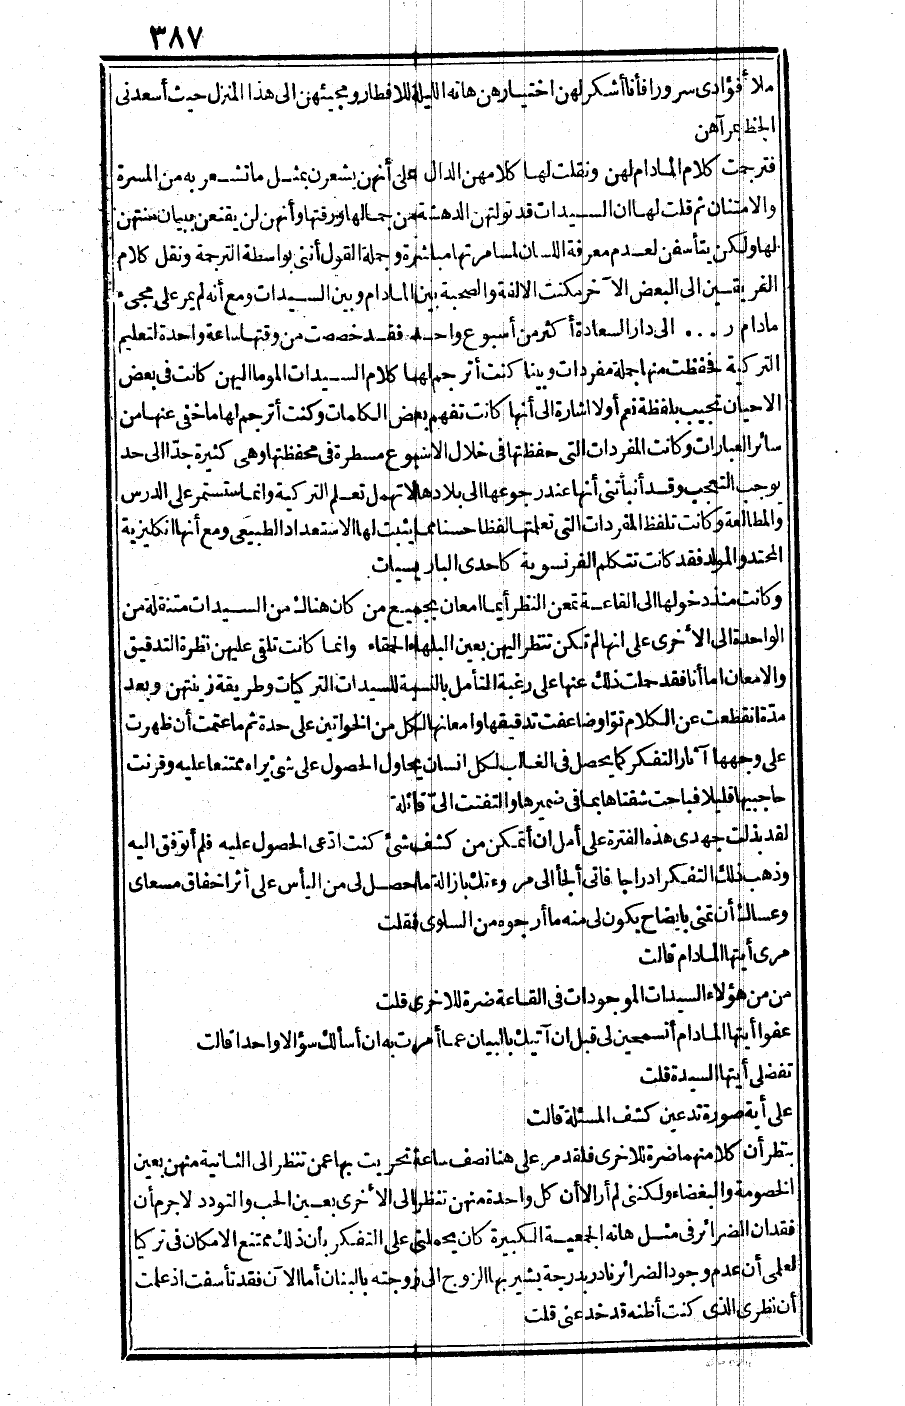 ٣٨٧
ملأ فؤادى سرورا فأنا أشكر لهن اختيارهن هاته الليلة للافطار ومجيئهن الى هذا المنزل حيث أسعدنى
الحظ عرآهن
فترجمت كلام المادام لهن ونقلت لها كلامهن الدال على أنهن يشعرن بمثل ما تشعر به من المسرة
والامتنان ثم قلت لها ان السيدات قد تولتهن الدهشة من جمالها ورقتها وأنهن لن يقنعن ببيان منتهن
لها ولكن يتأسفن لعدم معرفة اللسان لمسامرتها مباشرة وجملة القول أننى بواسطة الترجمة ونقل كلام
الفريقين الى البعض الآخر مكنت الالفة والصحبة بين المادام وبين السيدات ومع أنه لم يمر على مجىء
مادام ر ... الى دار السعادة أكثر من أسبوع واحد فقد خصصت من وقتها ساعة واحدة لتعليم
التركية فحفظت منها جملة مفردات وبينا كنت أترجم لها كلام السيدات الموما اليهن كانت فى بعض
الاحيان تجيب بلفظة نعم أولا اشارة الى أنها كانت تفهم بعض الكلمات وكنت أترجم لها ما خفى عنها من
سائر العبارات وكانت المفردات التى حفظتها فى خلال الاسبوع مسطرة فى محفظتها وهى كثيرة جدّا الى حد
يوجب التعجب وقد أنبأتنى أنها عند رجوعها الى بلادها لا تهمل تعلم التركية وانما ستستمر على الدرس
والمطالعة وكانت تلفظ المفردات التى تعلمتها لفظا حسنا مما يثبت لها الاستعداد الطبيعى ومع أنها انكليزية
المحتد والمولد فقد كانت تتكلم الفرنسوية كاحدى الباريسيات
وكانت منذ دخولها الى القاعة تمعن النظر أيما امعان بجميع من كان هناك من السيدات متنقلة من
الواحدة الى الأخرى على انها لم تكن تنظر اليهن بعين البلهاء الحمقاء وانما كانت تلقى عليهن نظرة التدقيق
والامعان اما أنا فقد حملت ذلك عنها على رغبة التأمل بالنسبة للسيدات التركيات وطريقة زينتهن وبعد
مدّة انقطعت عن الكلام توّا وضاعفت تدقيقها وامعانها لكل من الخواتين على حدة ثم ما عتمت أن ظهرت
على وجهها آثار التفكر كما يحصل فى الغالب لكل انسان يحاول الحصول على شئ يراه ممتنعا عليه وقرنت
حاجبيها قليلا فباحت شفتاها بما فى ضميرها والتفتت الىّ قائلة
لقد بذلت جهدى هذه الفترة على أمل ان أتمكن من كشف شئ كنت ادّعى الحصول عليه فلم أتوفق اليه
وذهب ذلك التفكر ادراجا فانى ألجأ الى مروءتك بازالة ما حصل لى من اليأس على أثر اخفاق مسعاى
وعسالك أن تمنى بايضاح يكون لى منه ما أرجوه من السلوى فقلت
مرى أيتها المادام قالت
من من هؤلاء السيدات الموجودات فى القاعة ضرة للاخرى قلت
عفوا أيتها المادام أتسمحين لى قبل ان آتيك بالبيان عما أمرت به ان أسألك سؤالا واحدا قالت
تفضلى أيتها السيدة قلت
على أية صورة تدعين كشف المسئلة قالت
بنظر أن كلا منهما ضرة للاخرى فلقد مر على هنا نصف ساعة تحريت بها عمن تنظر الى الثانية منهن بعين
الخصومة والبغضاء ولكننى لم أر الا أن كل واحدة منهن تنظر الى الأخرى بعين الحب والتودد لا جرم أن
فقدان الضرائر فى مثل هاته الجمعية الكبيرة كان يحملنى على التفكر بأن ذلك ممتنع الامكان فى تركيا
لعلمى أن عدم وجود الضرائر نادر بدرجة يشير بها الزوج الى زوجته بالبنان أما الآن فقد تأسفت اذ علمت
أن نظرى الذى كنت أظنه قد خدعنى قلت